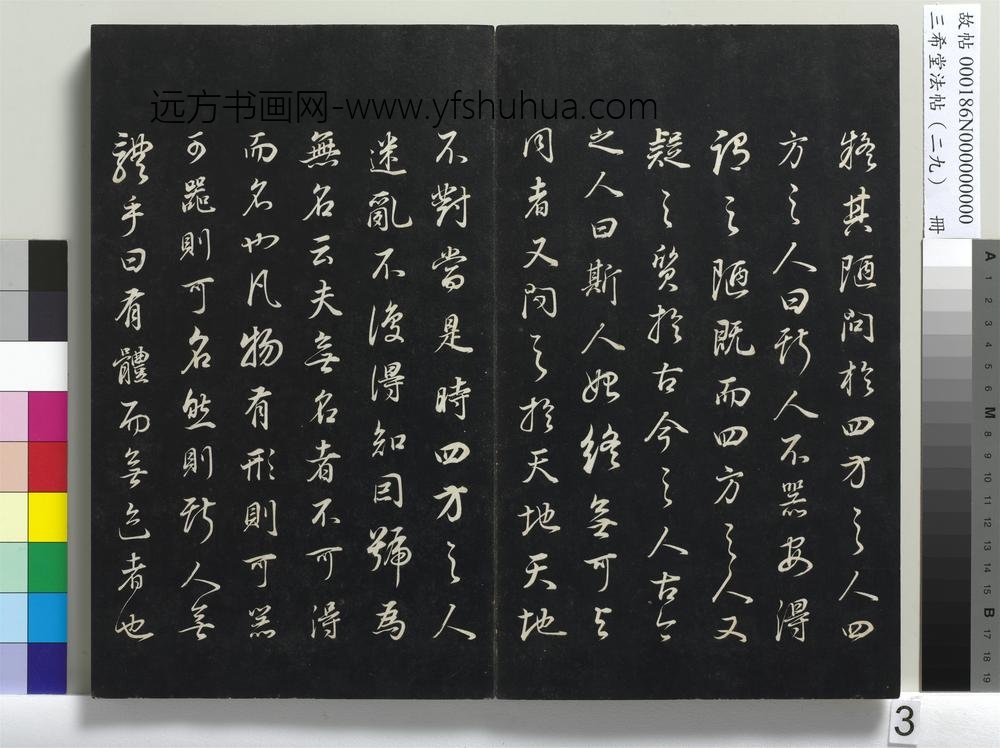 其陋問於四方之人四
方之人曰斯人不器安得
謂之陋既而四方之人又
疑之質於古今之人古今
之人曰斯人始終無可與
同者又問之於天地天地
不對當是時四方之人
迷亂不復得知因號為
無名云夫無名者不可得
而名也凡物有形則可器
可器則可名然則斯人無
體乎曰有體而無迹者也
远方书画网-www.yfshuhua.com
故帖 000186N000000000
三希堂法帖(二九) 冊
A 1 2 3 4 5 6 M 8 9 10 11 12 13 14 15 B 17 18 19
3